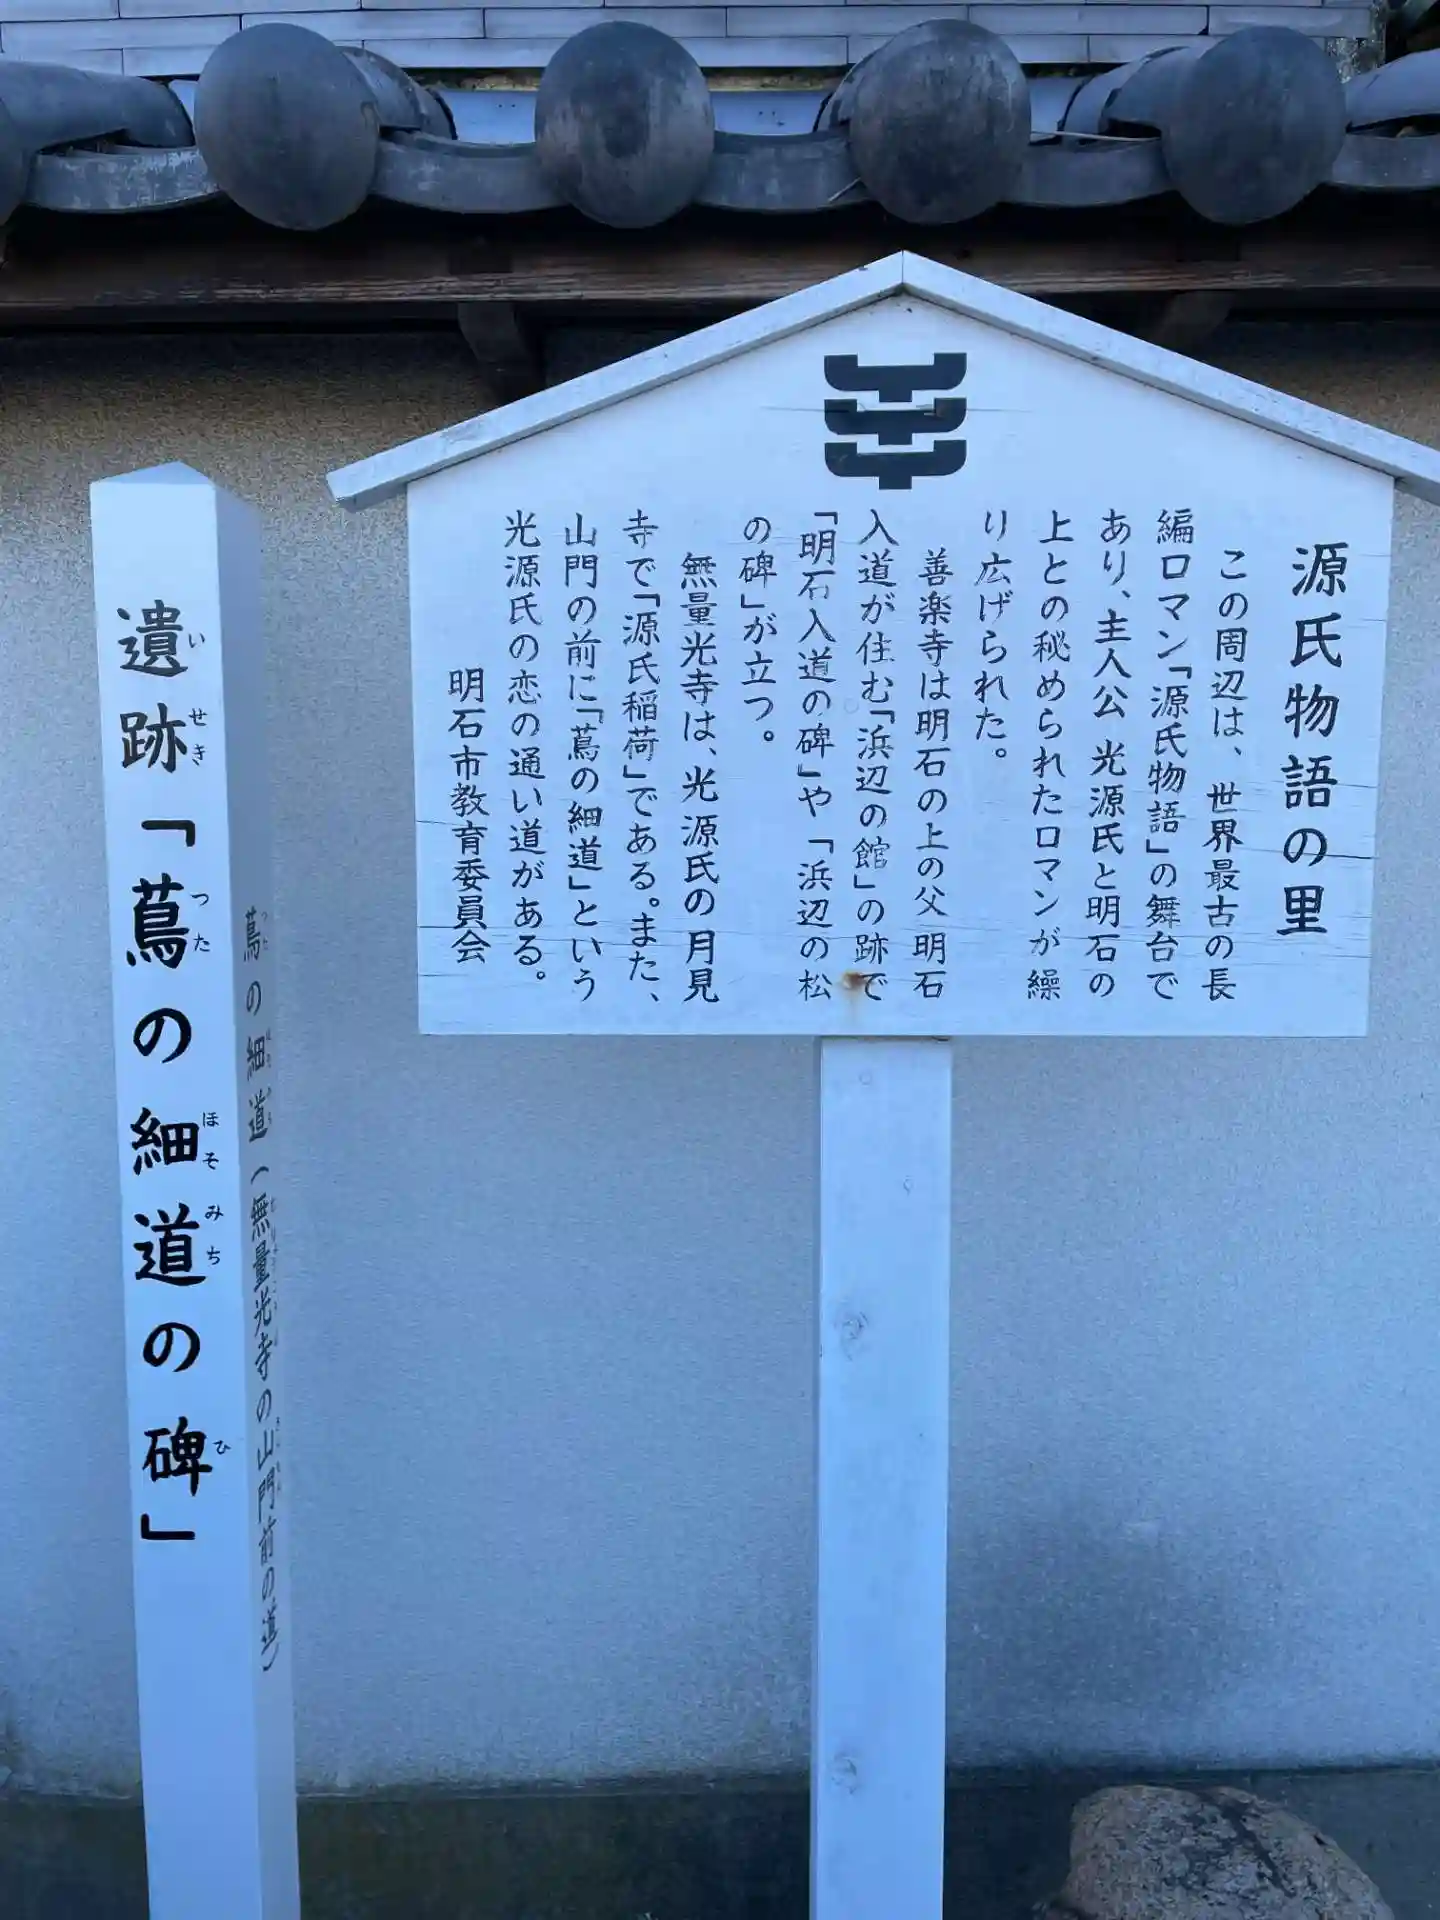 源氏物語の里
この周辺は、世界最古の長
編ロマン「源氏物語」の舞台で
あり、主人公 光源氏と明石の
上との秘められたロマンが繰
り広げられた。
善楽寺は明石の上の父 明石
入道が住む「浜辺の館」の跡で
「明石入道の碑」や「浜辺の松
の碑」が立つ。
無量光寺は、光源氏の月見
寺で「源氏稲荷」である。また、
山門の前に「蔦の細道」という
光源氏の恋の通い道がある。
明石市教育委員会
遺跡「蔦の細道の碑」
いせき つた ほそみち ひ
蔦の細道(無量光寺の山門前の道)